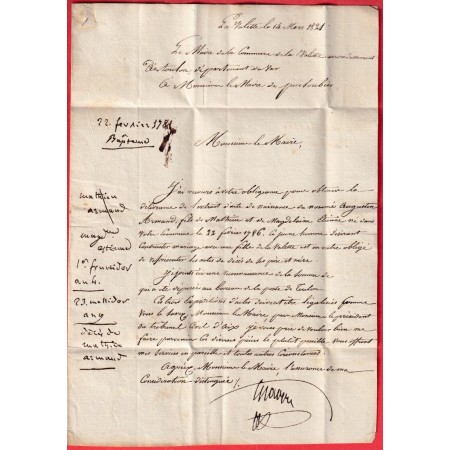 La Valette le 14 Mars 1821
Le Maire de la Commune de la Valette arrondissement
De toulon, département du Var
A Monsieur le Maire de
22. fevrier 1786
Bapteme
Monsieur le Maire,
J'ai recours à votre obligeance pour obtenir la
délivrance de l'extrait d'acte de naissance du nommé Augustin
Armand, fils de Mathieu et de Magdelaine né dans
votre Commune le 22 février 1786. Ce jeune homme devant
Contracter mariage avec une fille de la Valette et est obligé
de représenter les actes de décès de ses père et mère
mathieu
armand
magne
1er fructidor
an 4.
23. messidor
an 9
décès de
mathieu
armand
une reconnaissance de la somme de
qui a été déposée au bureau de la poste de Toulon
Ces expéditions d'actes doivent être légalisées
Vous le savez, Monsieur le Maire, par Monsieur le président
du tribunal Civil d'Aix je vous prie de vouloir bien me
faire parvenir les pièces le plutôt possible. Vous offrant
mes services en pareille et toutes autres Circonstances
Agréez Monsieur le Maire, l'assurance de ma
Considération distinguée